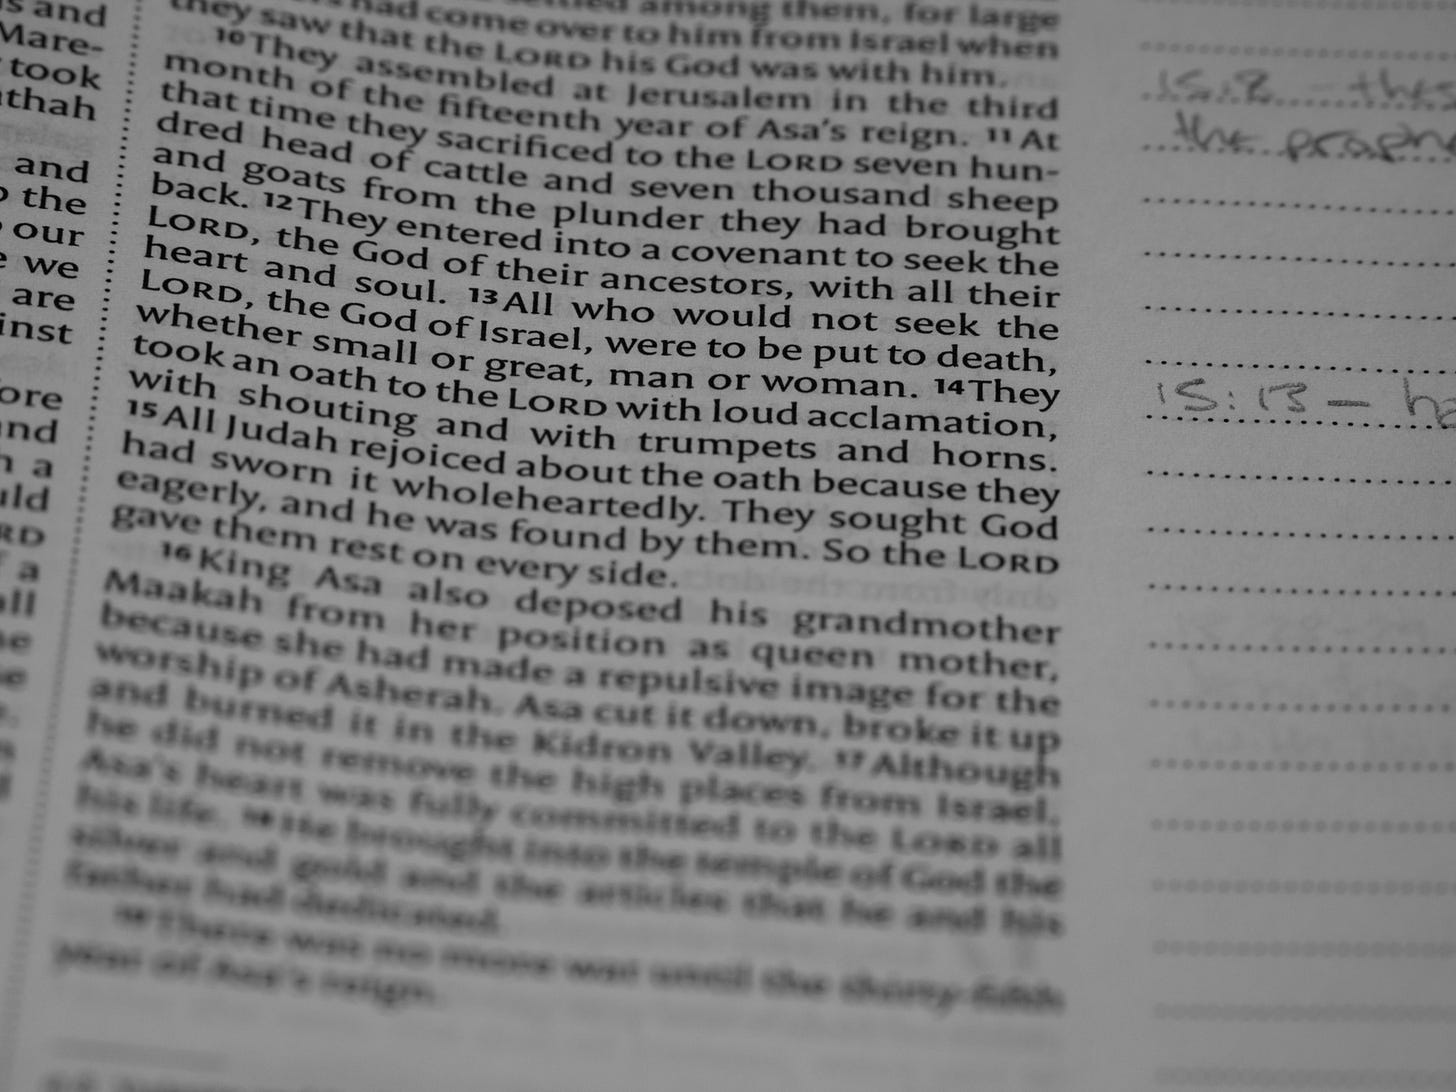 s and
Mare-
took
thah
and
the
our
we
are
inst
ore
and
a
uld
RD
a
all
had come over to him from Israel when
they saw that the LORD his God was with him.
10 They assembled at Jerusalem in the third
month of the fifteenth year of Asa's reign. 11 At
that time they sacrificed to the LORD seven hun-
dred head of cattle and seven thousand sheep
and goats from the plunder they had brought
back. 12 They entered into a covenant to seek the
LORD, the God of their ancestors, with all their
heart and soul. 13 All who would not seek the
LORD, the God of Israel, were to be put to death,
whether small or great, man or woman. 14 They
took an oath to the LORD with loud acclamation,
with shouting and with trumpets and horns.
15 All Judah rejoiced about the oath because they
had sworn it wholeheartedly. They sought God
eagerly, and he was found by them. So the LORD
gave them rest on every side.
16 King Asa also deposed his grandmother
Maakah from her position as queen mother,
because she had made a repulsive image for the
worship of Asherah. Asa cut it down, broke it up
and burned it in the Kidron Valley. 17 Although
he did not remove the high places from Israel,
Asa's heart was fully committed to the LORD all
his life. 18 He brought into the temple of God the
silver and gold and the articles that he and his
father had dedicated.
19 There was no more war until the thirty-fifth
year of Asa's reign.
the
15:13 – ha